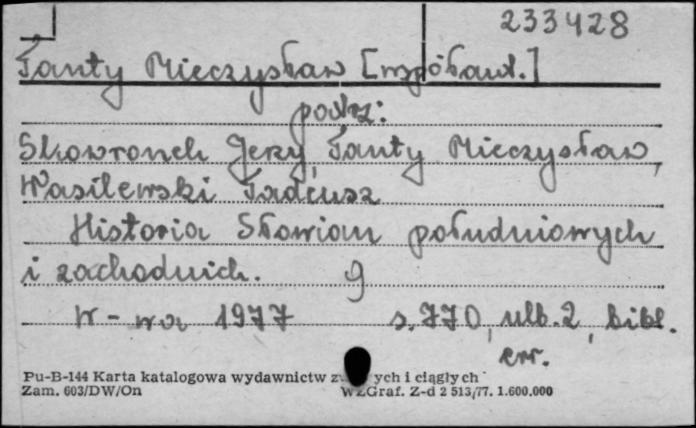 233428
Tanty Mieczysław [współaut.]
patrz:
Skowronek Jerzy, Tanty Mieczysław,
Wasilewski Tadeusz
Historia Słowian południowych
i zachodnich. 9
W-wa 1977 s. 770, ulb. 2, bibl.
err.
Pu-B-144 Karta katalogowa wydawnictw ych i ciągłych
Zam. 603/DW/On WZGraf. Z-d 2 513/77. 1.600.000